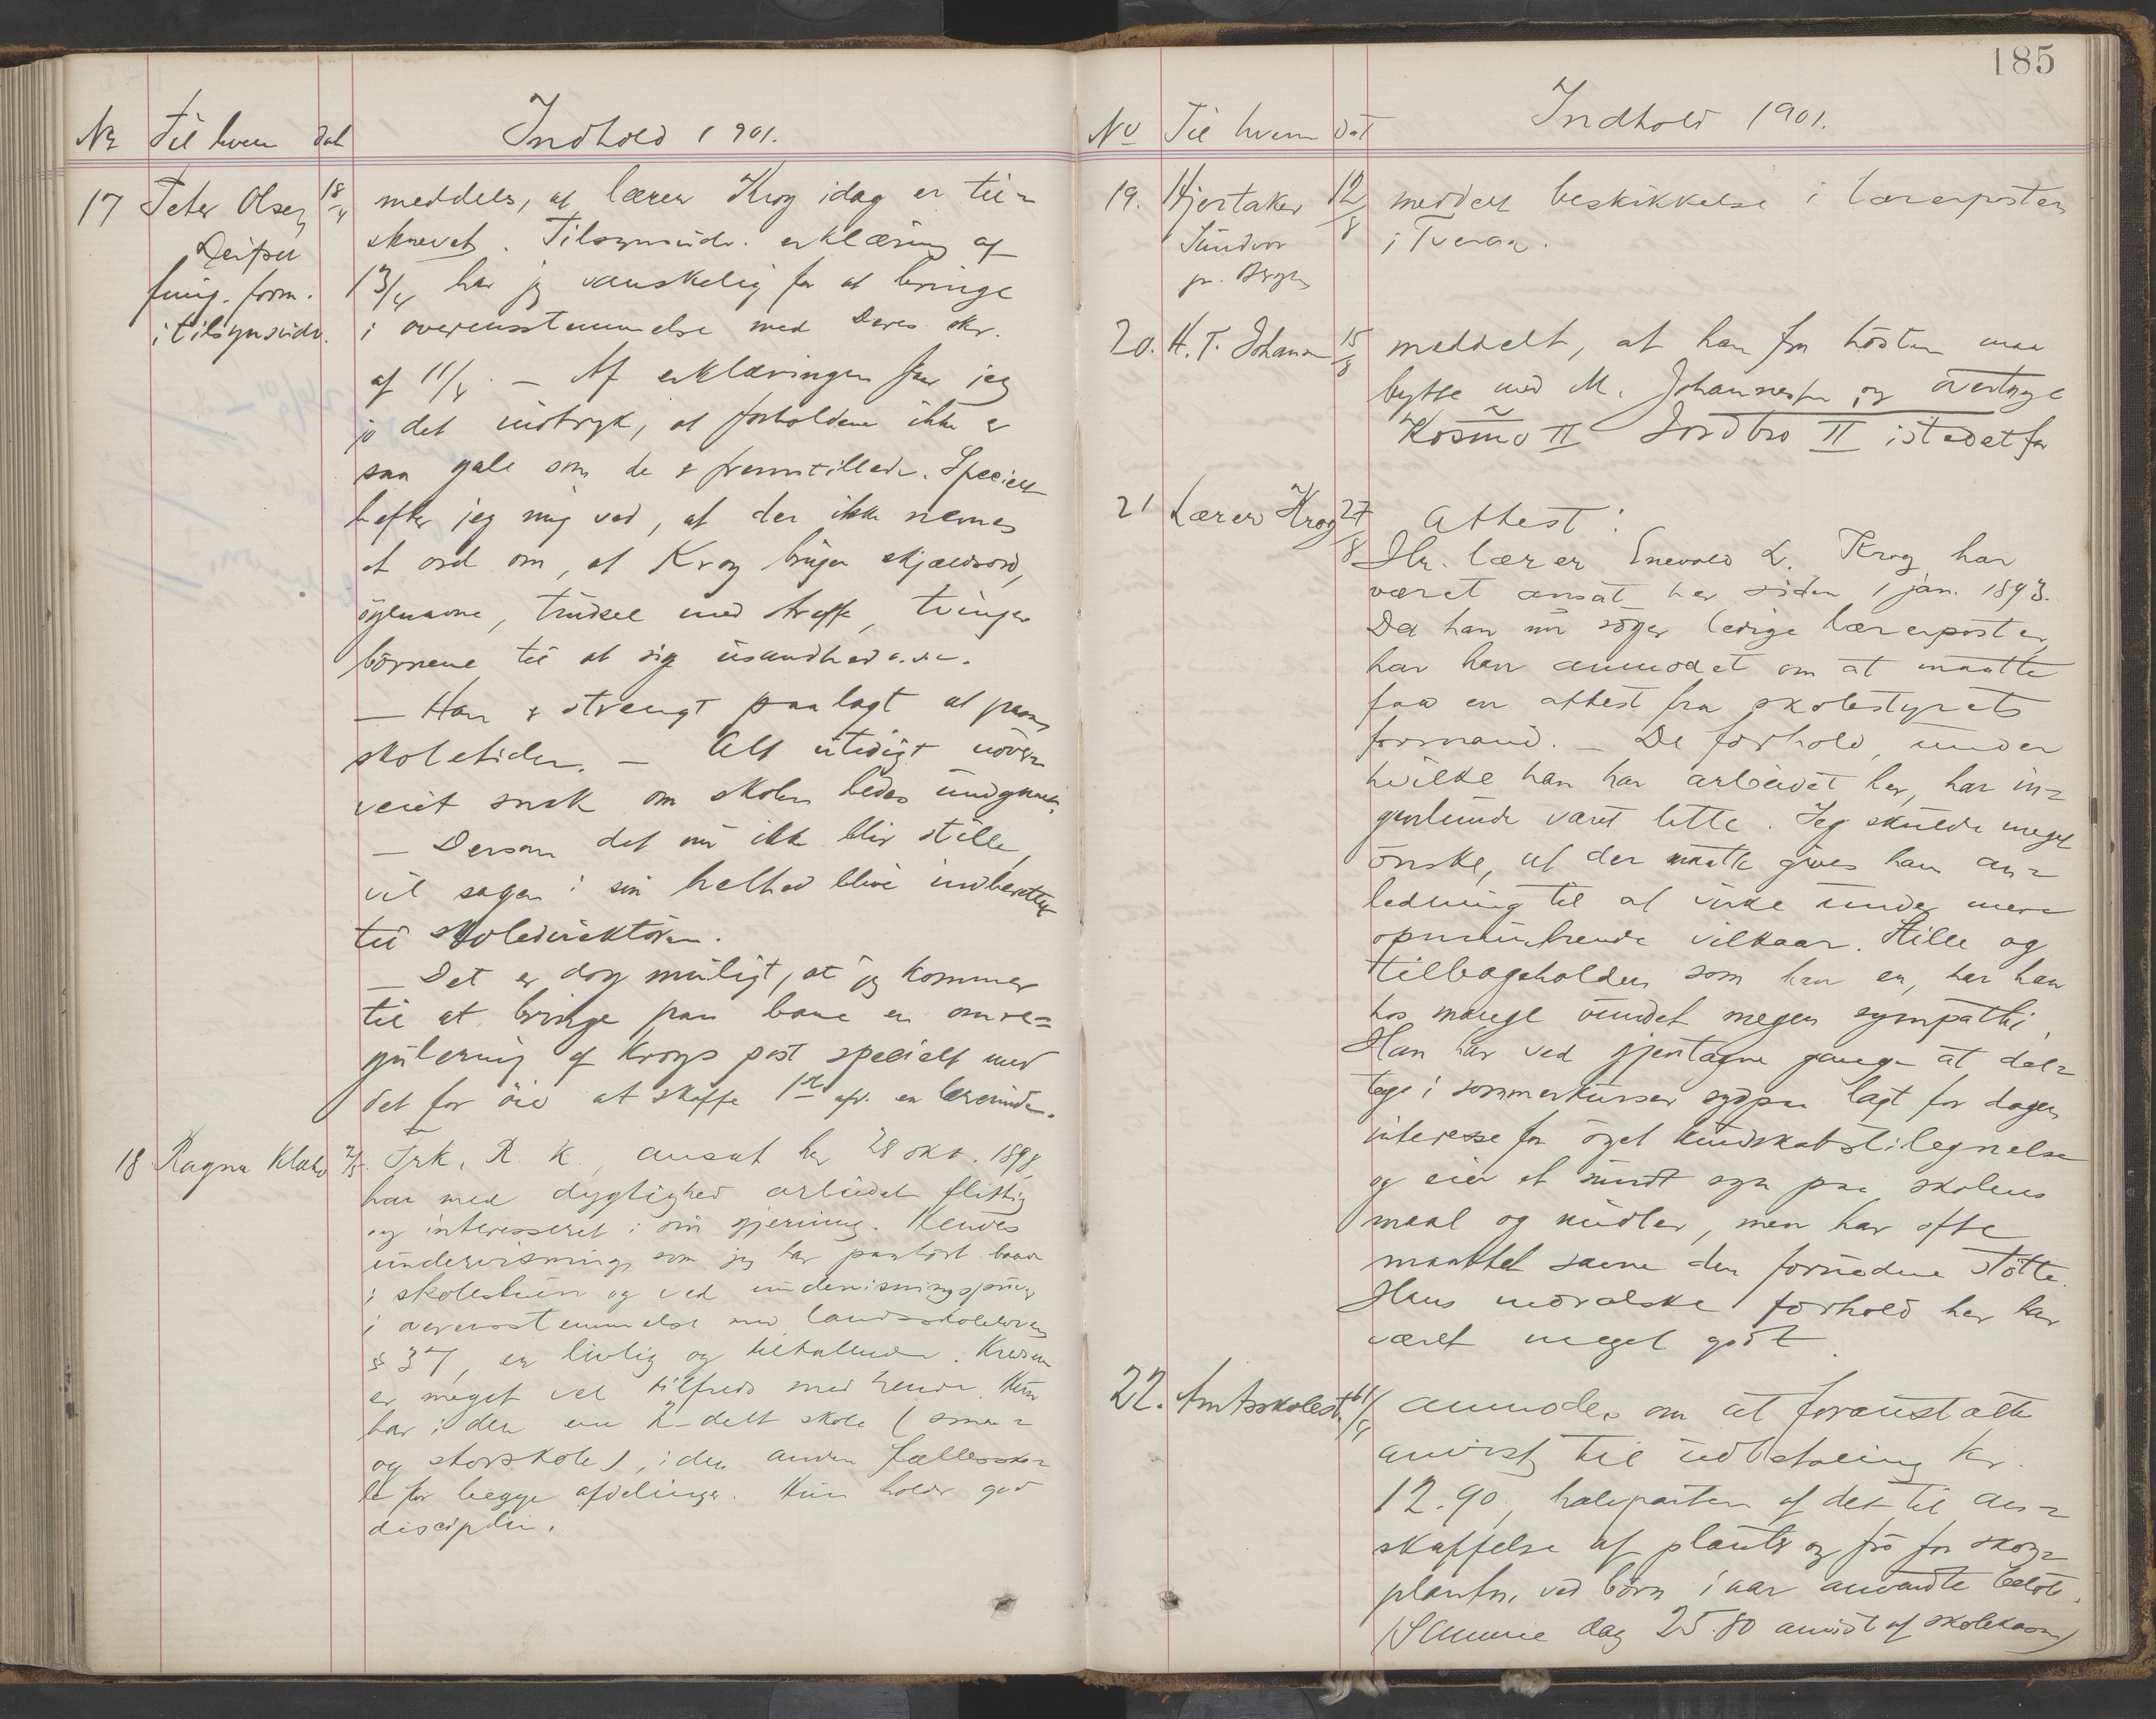 Nr Til hvem dat Indhold 1901.
17 Peter Olsen 18/4 meddeles, at lærer Krog idag er til=
skrevet. Tilsynsudv. erklæring af
fung. form. 13/4 har jeg vanskelig for at bringe
i tilsynsudv. i overensstemmelse med Deres skr.
af 11/4. — Af erklæringen faar jeg
jo det indtryk, at forholdene ikke er
saa gale som de er fremstillede. Specielt
hefter jeg mig ved, at der ikke nevnes
et ord om, at Krog bruger skjældsord,
øgenavne, trudsel med straffe, tvinger
børnene til at sige usandhed o.s.v.
— Han er strengt paalagt at passe
skoletiden. — Alt utidigt uover=
veiet snak om skolen bedes undgaaet.
— Dersom det nu ikke blir stille,
vil sagen i sin helhed blive indberettet
til skoledirektøren.
— Det er dog muligt, at jeg kommer
til at bringe paa bane en omre=
gulering af Krogs post specielt med
det for øie at skaffe 1ste afd. en lærerinde.
18 Ragna 2/5. Frk. R. K., ansat her 28 okt. 1898,
har med dygtighed arbeidet flittig
og interesseret i sin gjerning. Hendes
undervisning, som jeg har paahørt baade
i skolestuen og ved undervisningsprøver
i overensstemmelse med landsskoleloven
§ 37, er livlig og tiltalende. Kredsen
er meget vel tilfreds med hende. Hun
har i den ene 2-delt skole (smaa=
og storskole), i den anden fællessko=
le for begge afdelinger. Hun holder god
disciplin.
185
No Til hvem Dat Indhold 1901.
19. Hjertaker 12/8 meddelt beskikkelse i lærerposten
i Tveraa.
pr. Bergen
20. H. T. Johansen 15/8 meddelt, at han fra høsten maa
bytte med M. Johannesen og overtage
Kosmo II Jordbro II istedetfor
21 Lærer Krog 27/8 Attest:
Hr. lærer Enevold L. Krog har
været ansat her siden 1 jan. 1893.
Da han nu søger ledige lærerposter,
har han anmodet om at maatte
faa en attest fra skolestyrets
formand. — De forhold, under
hvilke han har arbeidet her, har in=
genlunde været lette. Jeg skulde meget
ønske, at der maatte gives ham an=
ledning til at virke under mere
opmuntrende vilkaar. Stille og
tilbageholden som han er, har han
hos mange vundet megen sympathi.
Han har ved gjentagne gange at del=
tage i sommerkurser sydpaa lagt for dagen
interesse for øget kundskabstilegnelse
og eier et sundt syn paa skolens
maal og midler, men har ofte
maattet savne den fornødne støtte.
Hans moralske forhold her har
været meget godt.
22. Amtsskolest. anmodes om at foranstalte
anvist til udbetaling kr.
12.90, halvparten af det til an=
skaffelse af planter og frø for skog=
plantn. ved børn iaar anvendte beløb.
(Samme dag 25.80 anvist af skolekassen)